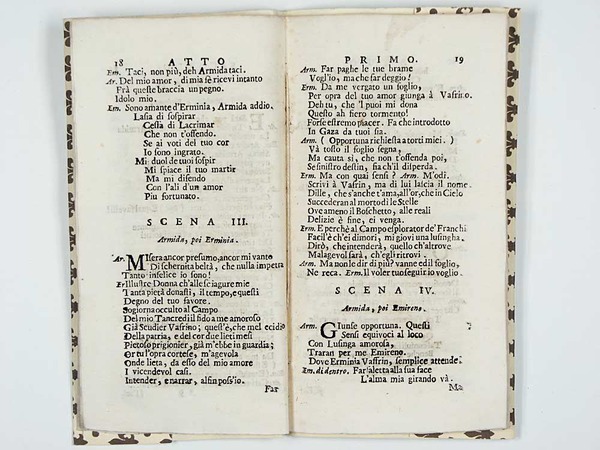 18 ATTO
Em. Taci, non più, deh Armida taci.
Ar. Del mio amor, di mia fè ricevi intanto
Frà queste braccia un pegno.
Idolo mio.
Em. Sono amante d'Erminia, Armida addio.
Lasia di sospirar
Cessa di Lacrimar
Che non t'offendo.
Se ai voti del tuo cor
Io sono ingrato.
Mi duol de tuoi sospir
Mi spiace il tuo martir
Ma mi difendo
Con l'ali d'un amor
Piu fortunato.
SCENA III.
Armida, poi Erminia.
Ar. Misera ancor presumo, ancor mi vanto
Di schernita beltà, che nulla impetra
Tanto infelice io sono!
Er Illustre Donna ch'alle sciagure mie
Tanta pietà donasti, il tempo, e questi
Degno del tuo favore.
Sogiorna occulto al Campo
Del mio Tancredi il fido a me amoroso
Già Scudier Vafrino; quest'è, che nel ecidio
Della patria, e del cor due lieti mesi
Pietoso prigionier, già m'ebbe in guardia;
Or tu l'opra cortese, m'agevola
Onde lieta, da esso del mio amore
I vicendevol casi.
Intender, e narrar, alfin poss'io.
Far
PRIMO. 19
Arm. Far paghe le tue brame
Vogl'io, ma che far deggio!
Erm. Da me vergato un foglio,
Per opra del tuo amor giunga à Vafrino.
Deh tu, che 'l puoi mi dona
Questo ah fiero tormento!
Forse estremo piacer. Fa che introdotto
In Gaza da tuoi sia.
Arm. ( Opportuna richiesta a torti miei. )
Và tosto il foglio segna,
Ma cauta si, che non t'offenda poi,
Se sinistro destin, sia ch'il disperda.
Erm. Ma con quai sensi? Arm. M'odi.
Scrivi à Vafrin, ma di lui lascia il nome.
Dille, che s'anche t'ama, all'or, che in Cielo
Succederan al morto dì le Stelle
Ove ameno il Boschetto, alle reali
Delizie è fine, ei venga.
Erm. E perchè al Campo esplorator de' Franchi
Facil'è ch'ei dimori, mi giovi una lusingha.
Dirò, che intenderà, quello ch'altrove
Malagevol sarà, ch'egli ritrovi.
Arm. Ma non le dir di più? vanne ed il foglio,
Ne reca. Erm. Il voler tuo seguir io voglio.
SCENA IV.
Armida, poi Emireno.
Arm. Giunse opportuna. Questi
Sensi equivoci al loco
Con Lusinga amorosa,
Traran per me Emireno.
Dove Erminia Vaffrin, semplice attende.
Em. di dentro. Farfaletta alla sua face
L'alma mia girando và.
Ma